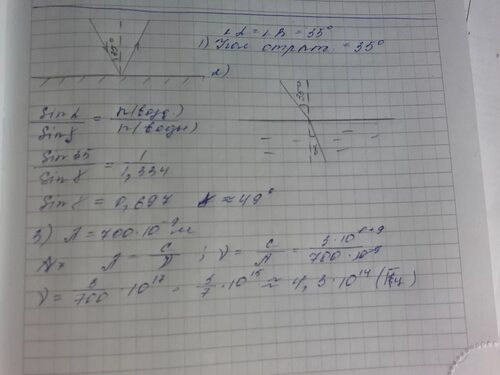 ∠α = ∠β = 35°
1) Угол отраж. = 35°
35°
2)
35°
sin α / sin γ = n(возд.) / n(воды)
γ
sin 35 / sin γ = 1 / 1,334
sin γ = 0,697 γ ≈ 49°
3) λ = 700·10⁻⁹ м
λ = c/ν ; ν = c/λ = 3·10⁸⁺⁹ / 700·10⁻⁹
ν = 3/700 · 10¹⁷ = 3/7 · 10¹⁵ ≈ 4,3·10¹⁴ (Гц)